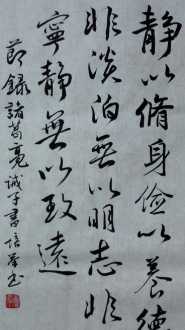 静以脩身俭以养德
非淡泊無以明志非
寧静無以致遠
節録諸葛亮诫子書 培 书